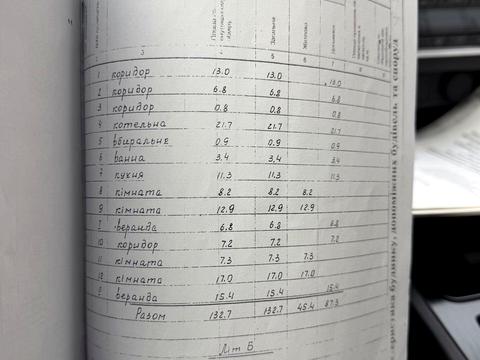 3 4 5 6 7 8 9
1 коридор 13.0 13.0 13.0
2 коридор 6.8 6.8 6.8
3 коридор 0.8 0.8 0.8
4 котельна 21.7 21.7 21.7
5 вбиральне 0.9 0.9 0.9
6 ванна 3.4 3,4 3.4
7 кухня 11.3 11.3 11.3
8 кімната 8.2 8.2 8.2
9 кімната 12.9 12.9 12.9
I веранда 6.8 6.8 6.8
10 коридор 7.2 7.2 7.2
11 кімната 7.3 7.3 7.3
12 кімната 17.0 17.0 17.0
веранда 15.4 15.4 15.4
Разом 132.7 132.7 45.4 87.3
Літ Б
Загальна
Житлова
будинку, допоміжних будівель та споруд